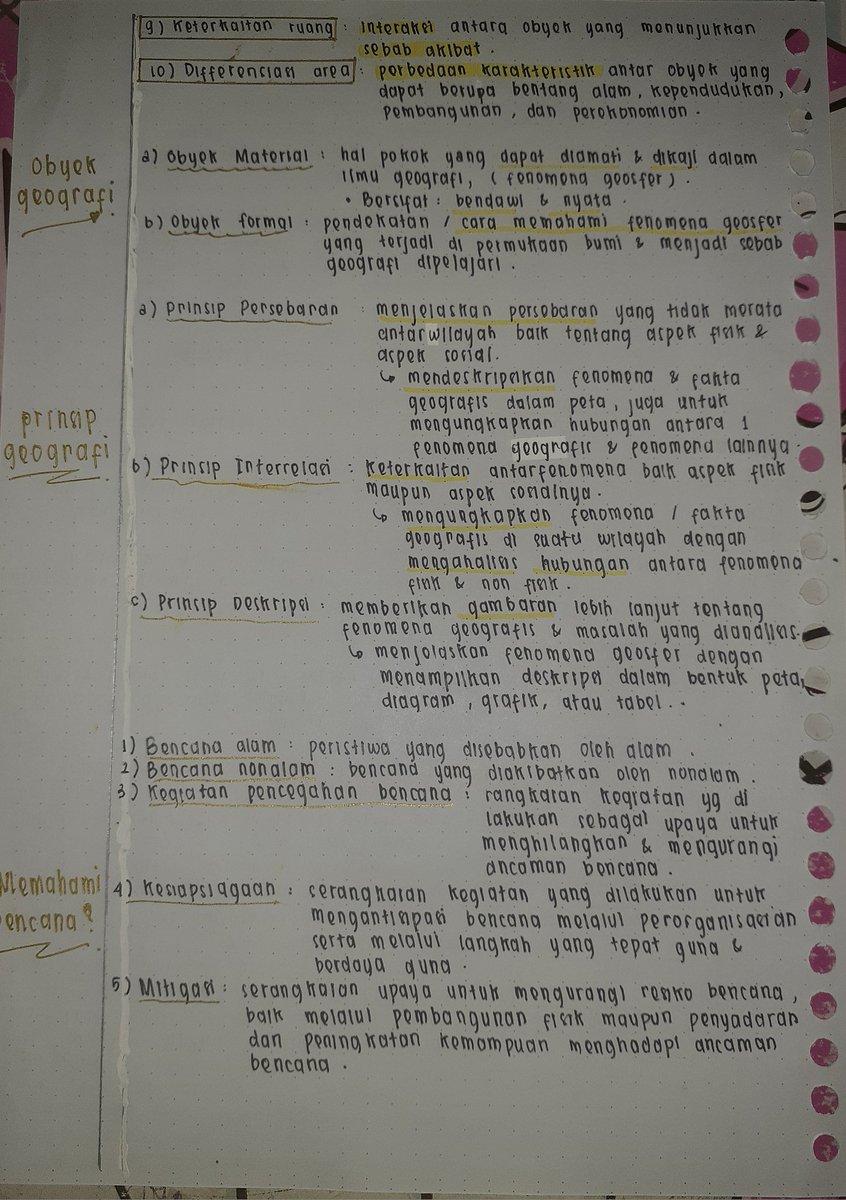 9) Keterkaitan ruang : interaksi antara obyek yang menunjukkan
sebab akibat.
10) Differensiasi area : perbedaan karakteristik antar obyek yang
dapat berupa bentang alam, kependudukan,
pembangunan, dan perekonomian.
Obyek
geografi
a) Obyek Material : hal pokok yang dapat diamati & dikaji dalam
ilmu geografi, ( fenomena geosfer ).
• Bersifat : bendawi & nyata.
b) Obyek formal : pendekatan / cara memahami fenomena geosfer
yang terjadi di permukaan bumi & menjadi sebab
geografi dipelajari.
prinsip
geografi
a) Prinsip Persebaran : menjelaskan persebaran yang tidak merata
antarwilayah baik tentang aspek fisik &
aspek sosial.
↳ mendeskripsikan fenomena & fakta
geografis dalam peta, juga untuk
mengungkapkan hubungan antara 1
fenomena geografis & fenomena lainnya.
b) Prinsip Interrelasi : Keterkaitan antarfenomena baik aspek fisik
maupun aspek sosialnya.
↳ mengungkapkan fenomena / fakta
geografis di suatu wilayah dengan
menganalisis hubungan antara fenomena
fisik & non fisik.
c) Prinsip Deskripsi : memberikan gambaran lebih lanjut tentang
fenomena geografis & masalah yang dianalisis.
↳ menjelaskan fenomena geosfer dengan
menampilkan deskripsi dalam bentuk peta,
diagram, grafik, atau tabel..
Memahami
bencana?
1) Bencana alam : peristiwa yang disebabkan oleh alam.
2) Bencana nonalam : bencana yang diakibatkan oleh nonalam.
3) Kegiatan pencegahan bencana : rangkaian kegiatan yg di
lakukan sebagai upaya untuk
menghilangkan & mengurangi
ancaman bencana.
4) Kesiapsiagaan : serangkaian kegiatan yang dilakukan untuk
mengantisipasi bencana melalui perorganisasian
serta melalui langkah yang tepat guna &
berdaya guna.
5) Mitigasi : serangkaian upaya untuk mengurangi resiko bencana,
baik melalui pembangunan fisik maupun penyadaran
dan peningkatan kemampuan menghadapi ancaman
bencana.